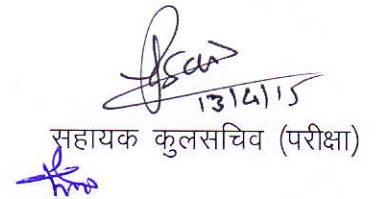 13/4/15
सहायक कुलसचिव (परीक्षा)